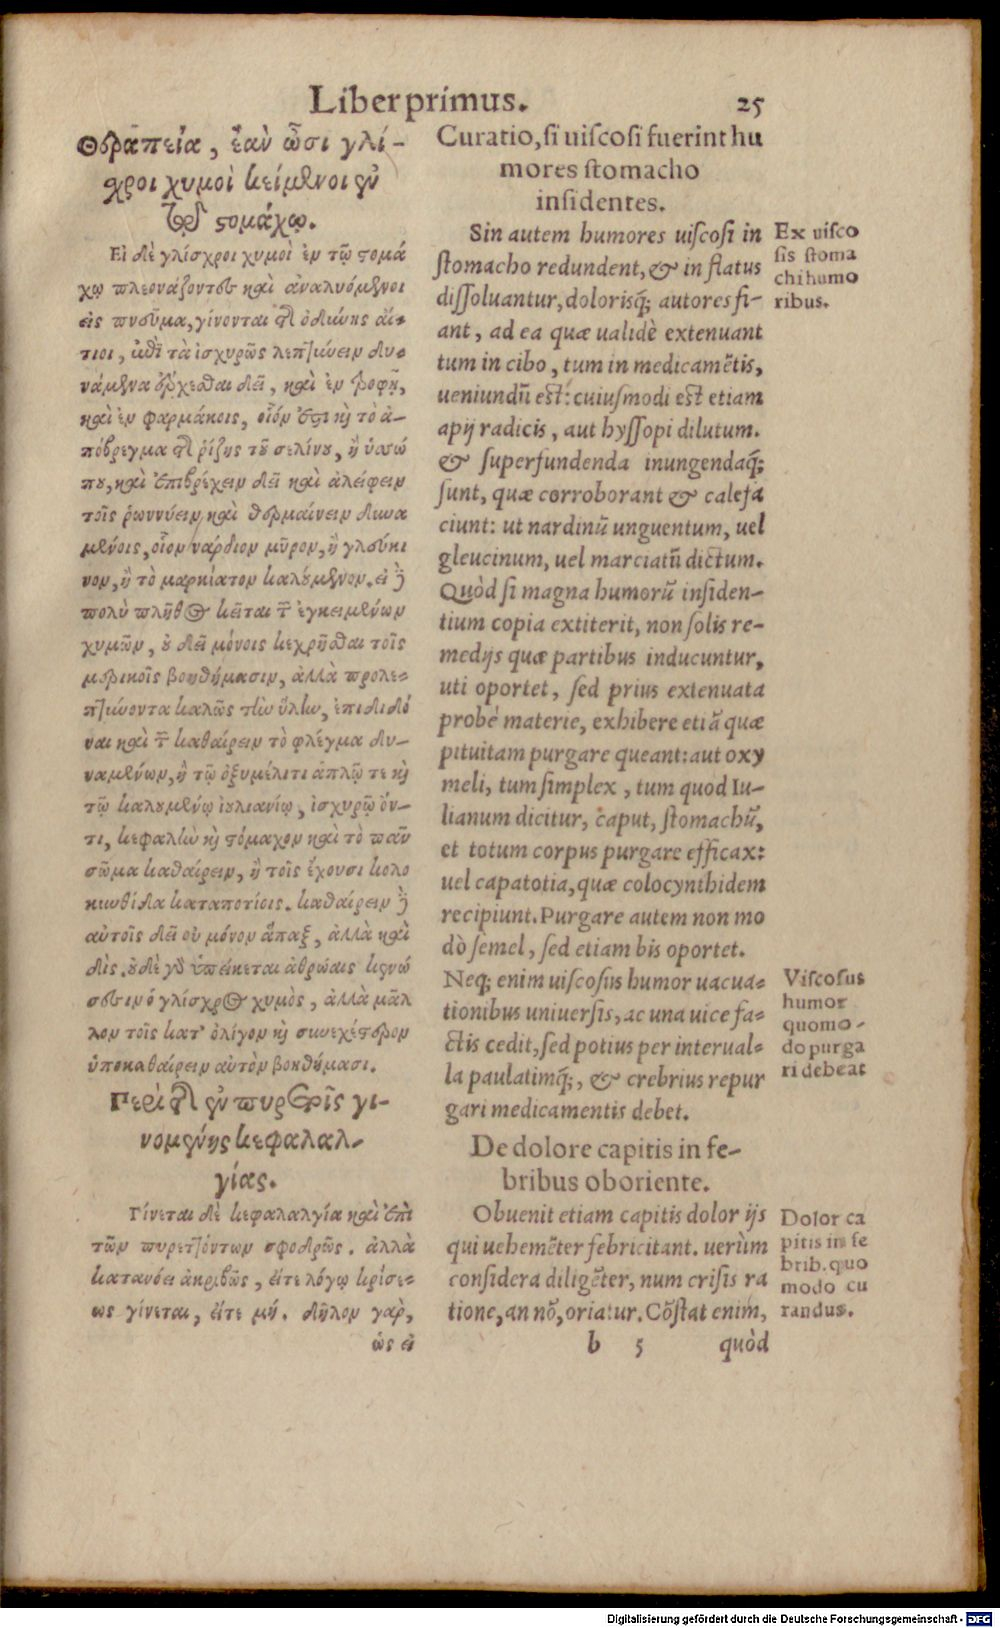 Liber primus. 25
Θεραπεία, ἐὰν ὦσι γλί-
χροι χυμοὶ κείμενοι ἐν
τῷ στομάχῳ.
Εἰ δὲ γλίσχροι χυμοὶ ἐν τῷ στομά
χῳ πλεονάζοντες καὶ ἀναλυόμενοι
εἰς πνεῦμα, γίνονται τῆς ὀδύνης αἴ-
τιοι, ἐπὶ τὰ ἰσχυρῶς λεπτύνειν δυ-
νάμενα ἔρχεσθαι δεῖ, καὶ ἐν ῥοφῇ,
καὶ ἐν φαρμάκοις, οἷόν ἐστι καὶ τὸ ἀ-
πόβρεγμα τῆς ῥίζης τοῦ σελίνου, ἢ ὑσσώ
που, καὶ ἐπιβρέχειν δεῖ καὶ ἀλείφειν
τοῖς ῥωννύειν καὶ θερμαίνειν δυνα
μένοις, οἷον νάρδιον μῦρον, ἢ γλεύκι
νον, ἢ τὸ μαρκίατον καλούμενον. εἰ δὲ
πολὺ πλῆθος κεῖται τῶν ἐγκειμένων
χυμῶν, οὐ δεῖ μόνοις κεχρῆσθαι τοῖς
μερικοῖς βοηθήμασιν, ἀλλὰ προλε-
πτύνοντα καλῶς τὴν ὕλην, ἐπιδιδό
ναι καὶ τῶν καθαίρειν τὸ φλέγμα δυ-
ναμένων, ἢ τῷ ὀξυμέλιτι ἁπλῷ τε καὶ
τῷ καλουμένῳ ἰουλιανίῳ, ἰσχυρῷ ὄν-
τι, κεφαλὴν καὶ στόμαχον καὶ τὸ πᾶν
σῶμα καθαίρειν, ἢ τοῖς ἔχουσι κολο
κινθίδα καταποτίοις. καθαίρειν δὲ
αὐτοῖς δεῖ οὐ μόνον ἅπαξ, ἀλλὰ καὶ
δὶς. οὐδὲ γὰρ ὑπείκεται ἀθρώαις κενώ
σεσιν ὁ γλίσχρος χυμὸς, ἀλλὰ μᾶλ
λον τοῖς κατ' ὀλίγον καὶ συνεχέστερον
ὑποκαθαίρειν αὐτὸν βοηθήμασι.
Περὶ τῆς ἐν πυρετοῖς γι-
νομένης κεφαλαλ-
γίας.
Γίνεται δὲ κεφαλαλγία καὶ ἐπὶ
τῶν πυρεττόντων σφοδρῶς. ἀλλὰ
κατανόει ἀκριβῶς, εἴτε λόγῳ κρίσε-
ως γίνεται, εἴτε μή. δῆλον γὰρ,
ὡς εἰ
Curatio, si uiscosi fuerint hu
mores stomacho
insidentes.
Sin autem humores uiscosi in
stomacho redundent, & in flatus
dissoluantur, dolorisq́; autores fi-
ant, ad ea quæ ualidè extenuant
tum in cibo, tum in medicamẽtis,
ueniundũ est: cuiusmodi est etiam
apij radicis, aut hyssopi dilutum.
& superfundenda inungendaq́;
sunt, quæ corroborant & calefa
ciunt: ut nardinũ unguentum, uel
gleucinum, uel marciatũ dictum.
Quòd si magna humorũ insiden-
tium copia extiterit, non solis re-
medijs quæ partibus inducuntur,
uti oportet, sed prius extenuata
probè materie, exhibere etiã quæ
pituitam purgare queant: aut oxy
meli, tum simplex, tum quod Iu-
lianum dicitur, caput, stomachũ,
et totum corpus purgare efficax:
uel capatotia, quæ colocynthidem
recipiunt. Purgare autem non mo
dò semel, sed etiam bis oportet.
Neq; enim uiscosus humor uacua-
tionibus uniuersis, ac una uice fa-
ctis cedit, sed potius per interual-
la paulatimq́;, & crebrius repur
gari medicamentis debet.
De dolore capitis in fe-
bribus oboriente.
Obuenit etiam capitis dolor ijs
qui uehemẽter febricitant. uerùm
considera diligẽter, num crisis ra
tione, an nõ, oriatur. Cõstat enim,
b 5 quòd
Ex uisco
sis stoma
chi humo
ribus.
Viscosus
humor
quomo-
do purga
ri debeat
Dolor ca
pitis in fe
brib. quo
modo cu
randus.
Digitalisierung gefördert durch die Deutsche Forschungsgemeinschaft - DFG